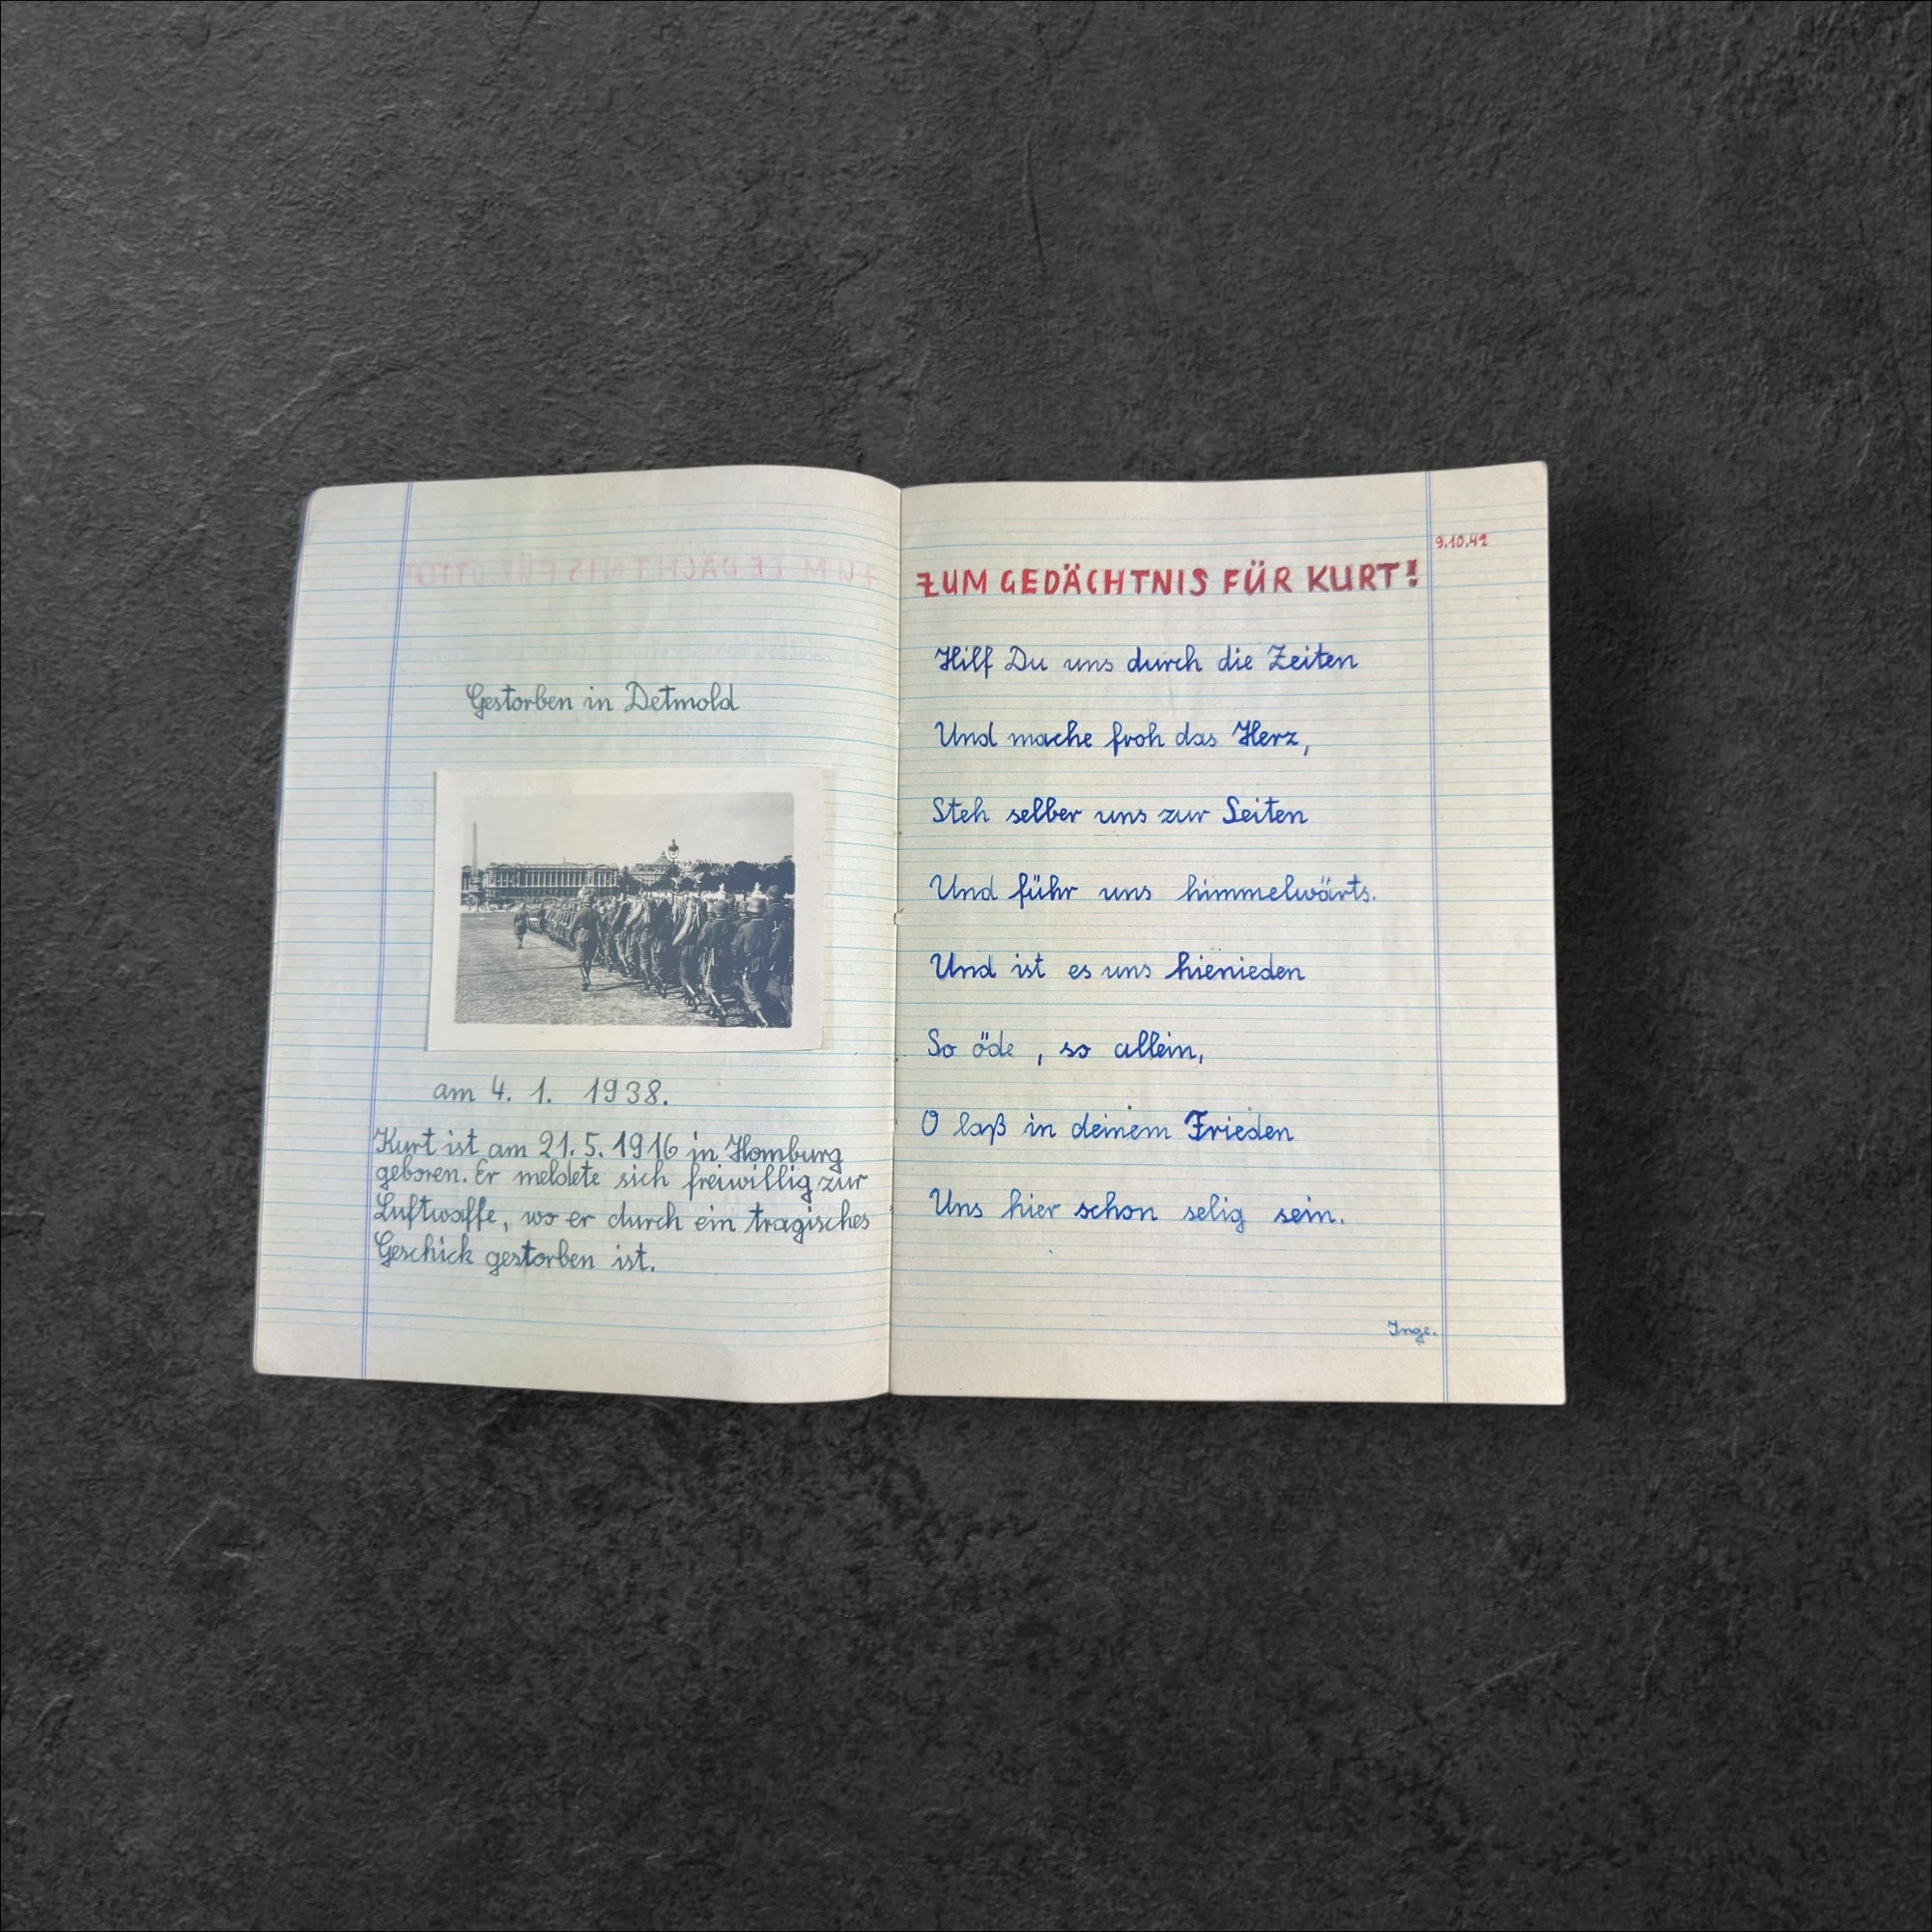 Gestorben in Detmold
am 4. 1. 1938.
Kurt ist am 21. 5. 1916 in Homburg
geboren. Er meldete sich freiwillig zur
Luftwaffe, wo er durch ein tragisches
Geschick gestorben ist.
9.10.42
ZUM GEDÄCHTNIS FÜR KURT!
Hilf Du uns durch die Zeiten
Und mache froh das Herz,
Steh selber uns zur Seiten
Und führ uns himmelwärts.
Und ist es uns hienieden
So öde, so allein,
O laß in deinem Frieden
Uns hier schon selig sein.
Inge.